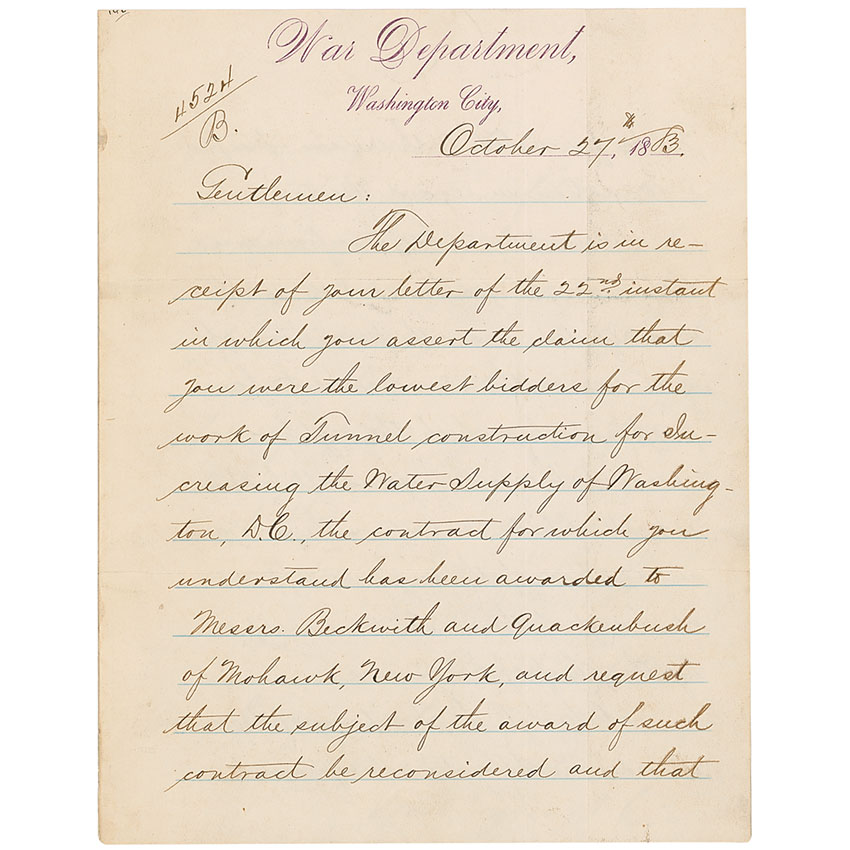 War Department,
Washington City,
4524
B.
October 27th, 1883.
Gentlemen:
The Department is in re-
ceipt of your letter of the 22nd. instant
in which you assert the claim that
you were the lowest bidders for the
work of Tunnel construction for In-
creasing the Water Supply of Washing-
ton, D.C., the contract for which you
understand has been awarded to
Messrs. Beckwith and Quackenbush
of Mohawk, New York, and request
that the subject of the award of such
contract be reconsidered and that